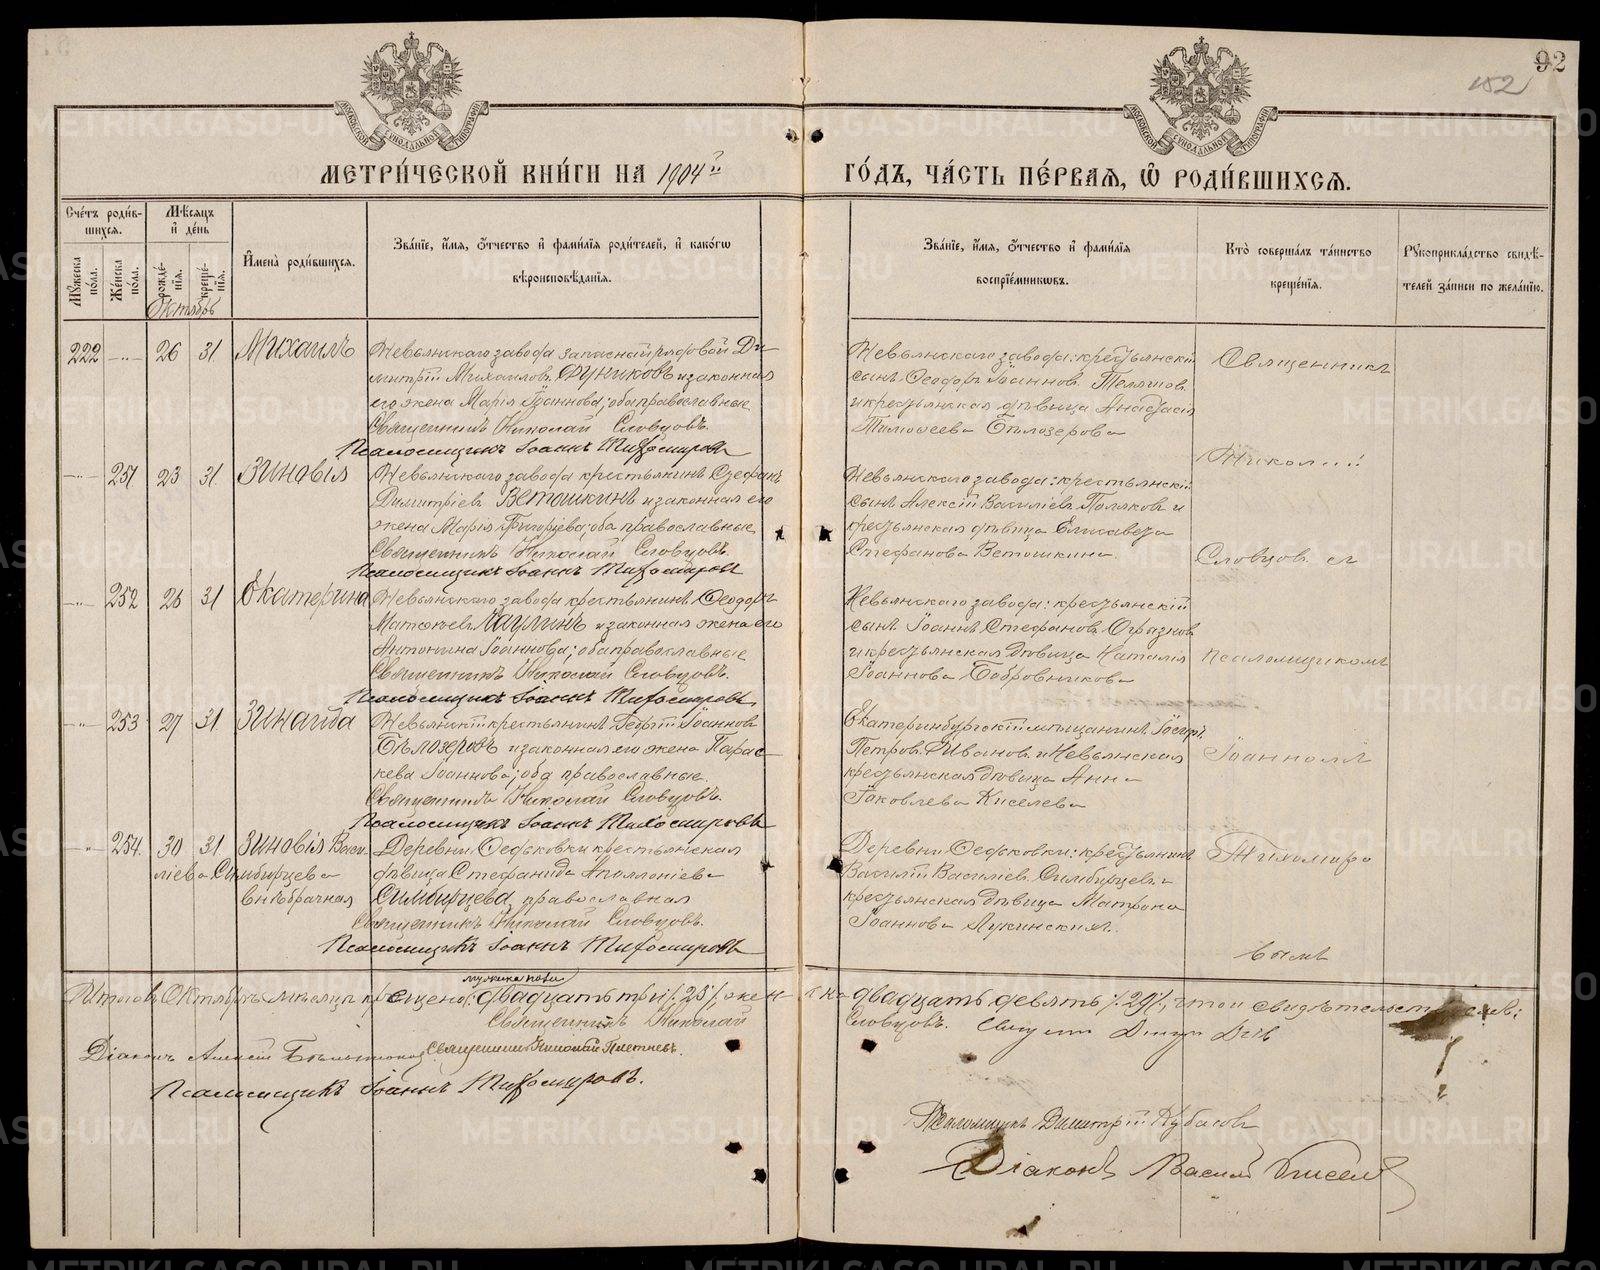 92
152
МОСКОВСКОЙ СѴНОДАЛЬНОЙ ТИПОГРАФІИ
МОСКОВСКОЙ СѴНОДАЛЬНОЙ ТИПОГРАФІИ
МЕТРИ́ЧЕСКОЙ КНИ́ГИ НА 1904й ГО́ДЪ, ЧА́СТЬ ПЕ́РВАЯ, Ѡ РОДИ́ВШИХСЯ.
Счётъ роди́в-
шихся.
Мѣ́сяцъ
и҆ де́нь
Му́жеска
по́ла.
Же́нска
по́ла.
рожде́-
нїя.
креще́-
нїя.
И҆мена̀ роди́вшихся.
Зва́нїе, и҆́мя, ѻ҆́тчество и҆ фами́лїя роди́телей, и҆ како́гѡ
вѣроисповѣ́данїя.
Зва́нїе, и҆́мя, ѻ҆́тчество и҆ фами́лїя
воспрїе́мникѡвъ.
Кто̀ соверша́лъ та́инство
креще́нїя.
Рꙋкоприкла́дство свидѣ́-
телей за́писи по жела́нїю.
Октябрь
222 —„— 26 31 Михаилъ
Невьянскаго завода запасный рядовой Ди-
митрій Михаиловъ Дуниковъ и законная
его жена Марія Іоаннова; оба православные
Священникъ Николай Словцовъ.
Псаломщикъ Іоаннъ Тихомировъ
Невьянскаго завода: крестьянскій
сынъ Ѳеодоръ Іоанновъ
и крестьянская дѣвица Анастасія
Тимоѳеева Бѣлозерова
Священникъ
Николай
—„— 251 23 31 Зиновія
Невьянскаго завода крестьянинъ Стефанъ
Димитріевъ Ветошкинъ и законная его
жена Марія Григоріева, оба православные
Священникъ Николай Словцовъ.
Псаломщикъ Іоаннъ Тихомировъ
Невьянскаго завода: крестьянскій
сынъ Алексій Василіевъ Поляковъ и
крестьянская дѣвица Елисавета
Стефанова Ветошкина.
Словцовъ съ
—„— 252 26 31 Екатерина
Невьянскаго завода крестьянинъ Ѳеодоръ
Матѳіевъ и законная жена его
Антонина Іоаннова; оба православные
Священникъ Николай Словцовъ.
Псаломщикъ Іоаннъ Тихомировъ
Невьянскаго завода: крестьянскій
сынъ Іоаннъ Стефановъ Огрызковъ
и крестьянская дѣвица Наталія
Іоаннова Бобровникова
псаломщикомъ
—„— 253 27 31 Зинаида
Невьянскій крестьянинъ Георгій Іоанновъ
Бѣлозеровъ и законная его жена Парас-
кева Іоаннова; оба православные.
Священникъ Николай Словцовъ.
Псаломщикъ Іоаннъ Тихомировъ
Екатеринбургскій мѣщанинъ
Петровъ Ивановъ и Невьянская
крестьянская дѣвица Анна
Іаковлева Киселева
Іоанномъ
—„— 254. 30 31 Зиновія Васи-
ліева Симбирцева
внѣбрачная
Деревни Ѳедьковки крестьянская
дѣвица Стефанида Аполлоніева
Симбирцева, православная
Священникъ Николай Словцовъ.
Псаломщикъ Іоаннъ Тихомировъ
Деревни Ѳедьковки: крестьянинъ
Василій Василіевъ Симбирцевъ и
крестьянская дѣвица Матрона
Іоаннова Лукинская.
Тихомиро-
вымъ
мужска пола
Итого въ Октябрѣ мѣсяцѣ крещено: двадцать три /.23/., жен-
ска двадцать девять /.29/., въ томъ свидѣтельствуемъ:
Священникъ Николай Словцовъ.
Діаконъ Алексій Священникъ Николай Плетневъ.
Псаломщикъ Іоаннъ Тихомировъ.
Псаломщикъ Димитрій Кубасовъ
Діаконъ Василій
METRIKI.GASO-URAL.RU